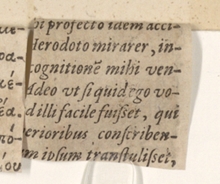 hi profecto idem acci-
Herodoto mirarer, in-
cognitionē mihi ven-
Adeo vt si quid ego vo-
d illi facile fuisset, qui
erioribus conscriben-
m ipsum transtulisset,